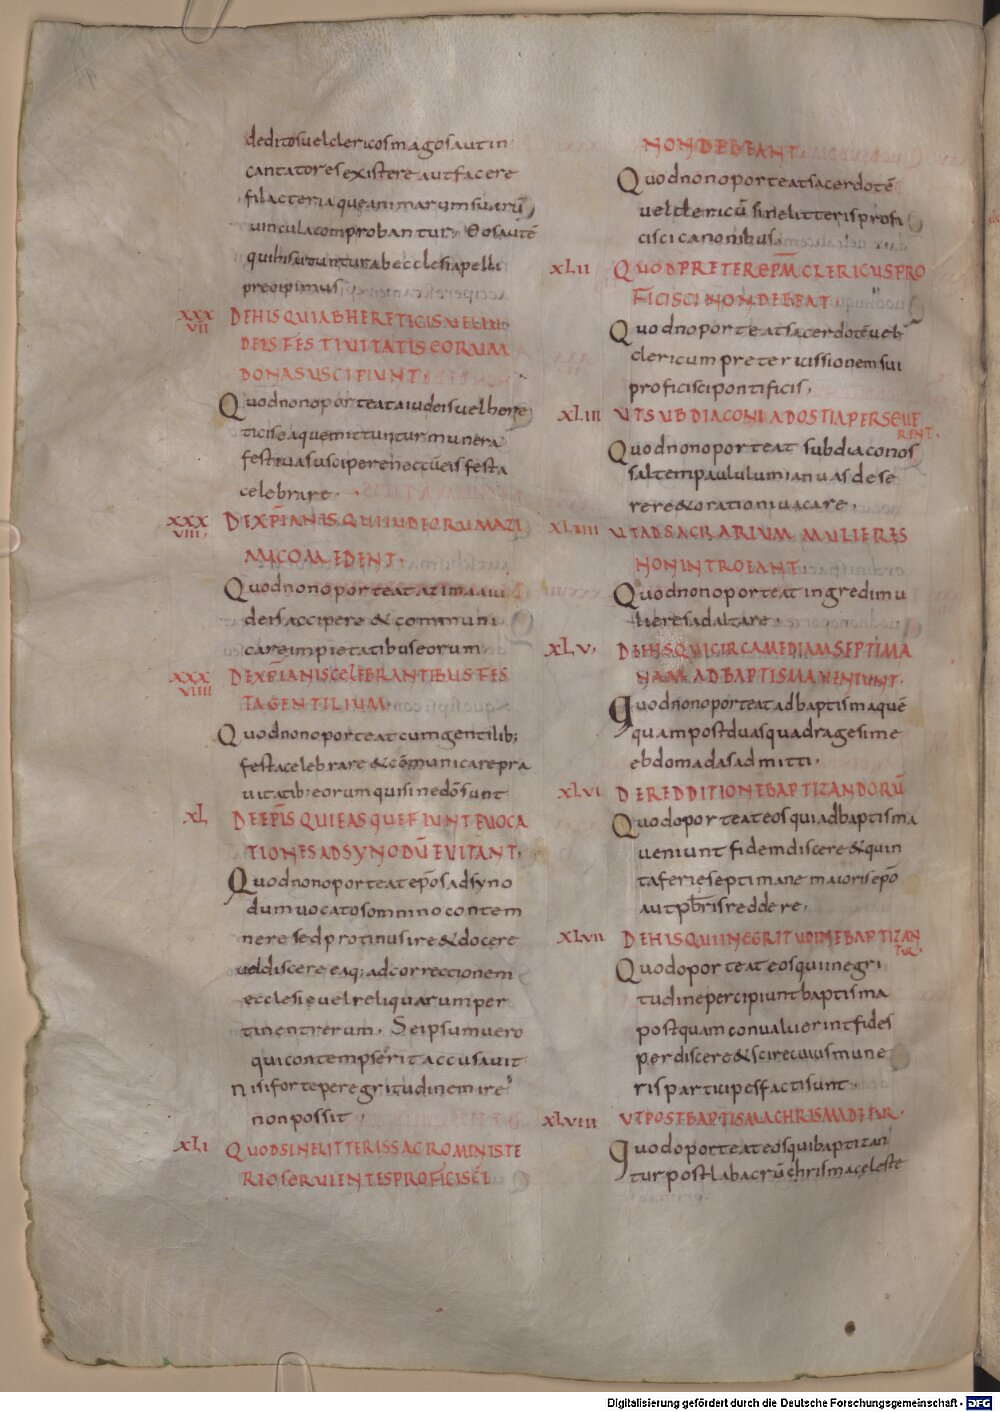 deditos uel clericos magos aut in
cantatores existere aut facere
filacteria que animarum suarū
uincula comprobantur. Eos autē
qui his utuntur ab ecclesia pelli
precipimus.
XXX
VII
DE HIS QUI AB HERETICIS UEL IU
DEIS FESTIUITATIS EORUM
DONA SUSCIPIUNT
Quod non oporteat a iudeis uel here
ticis eaque mittuntur munera
festiua suscipere nec cū eis festa
celebrare.
XXX
VIII,
DE XP̄IANIS QUI IUDEORUM AZI
MA COMEDENT.
Quod non oporteat azima a iu
deis accipere & communi
care impietatibus eorum.
XXX
VIIII
DE XP̄IANIS CELEBRANTIBUS FES
TA GENTILIUM.
Quod non oporteat cum gentilib;
festa celebrare & cōmunicare pra
uitatib; eorum qui sine dō sunt
XL
DE EP̄IS QUI EAS QUE FIUNT EUOCA
TIONES AD SYNODŪ EUITANT.
Quod non oporteat ep̄os ad syno
dum uocatos omnino contem
nere sed protinus ire & docere
uel discere eaq; ad correctionem
ecclesie uel reliquarum per
tinent rerum. Seipsum uero
qui contempserit accusauit
nisi forte per egritudinem ire
non possit.
XLI
QUOD SINE LITTERIS SACRO MINISTE
RIO SERUIENTES PROFICISCI
NON DEBEANT.
Quod non oporteat sacerdotē
uel clericū sine litteris profi
cisci canonibus.
XLII
QUOD PRETER EP̄M CLERICUS PRO
FICISCI NON DEBEAT
Quod non oporteat sacerdotē ueb
clericum preter iussionem sui
proficisci pontificis.
XLIII
UT SUBDIACONI AD OSTIA PERSEUE
RENT.
Quod non oporteat subdiaconos
saltem paululum ianuas dese
rere & orationi uacare.
XLIIII
UT AD SACRARIUM MULIERES
NON INTROEANT.
Quod non oporteat ingredi mu
lieres ad altare.
XLV,
DE HIS QUI CIRCA MEDIAM SEPTIMA
NAM AD BAPTISMA UENIUNT.
Quod non oporteat ad baptisma quē
quam post duas quadragesime
ebdomadas admitti.
XLVI
DE REDDITIONE BAPTIZANDORŪ
Quod oporteat eos qui ad baptisma
ueniunt fidem discere & quin
ta ferie septimane maioris ep̄o
aut pb̄ris reddere.
XLVII
DE HIS QUI IN EGRITUDINE BAPTIZAN
TUR.
Quod oporteat eos qui in egri
tudine percipiunt baptisma
postquam conualuerint fides
perdiscere & scire cuius mune
ris participes facti sunt.
XLVIII
UT POST BAPTISMA CHRISMA DETUR.
Quod oporteat eos qui baptizan
tur post labacrū chrisma celeste
Digitalisierung gefördert durch die Deutsche Forschungsgemeinschaft - DFG